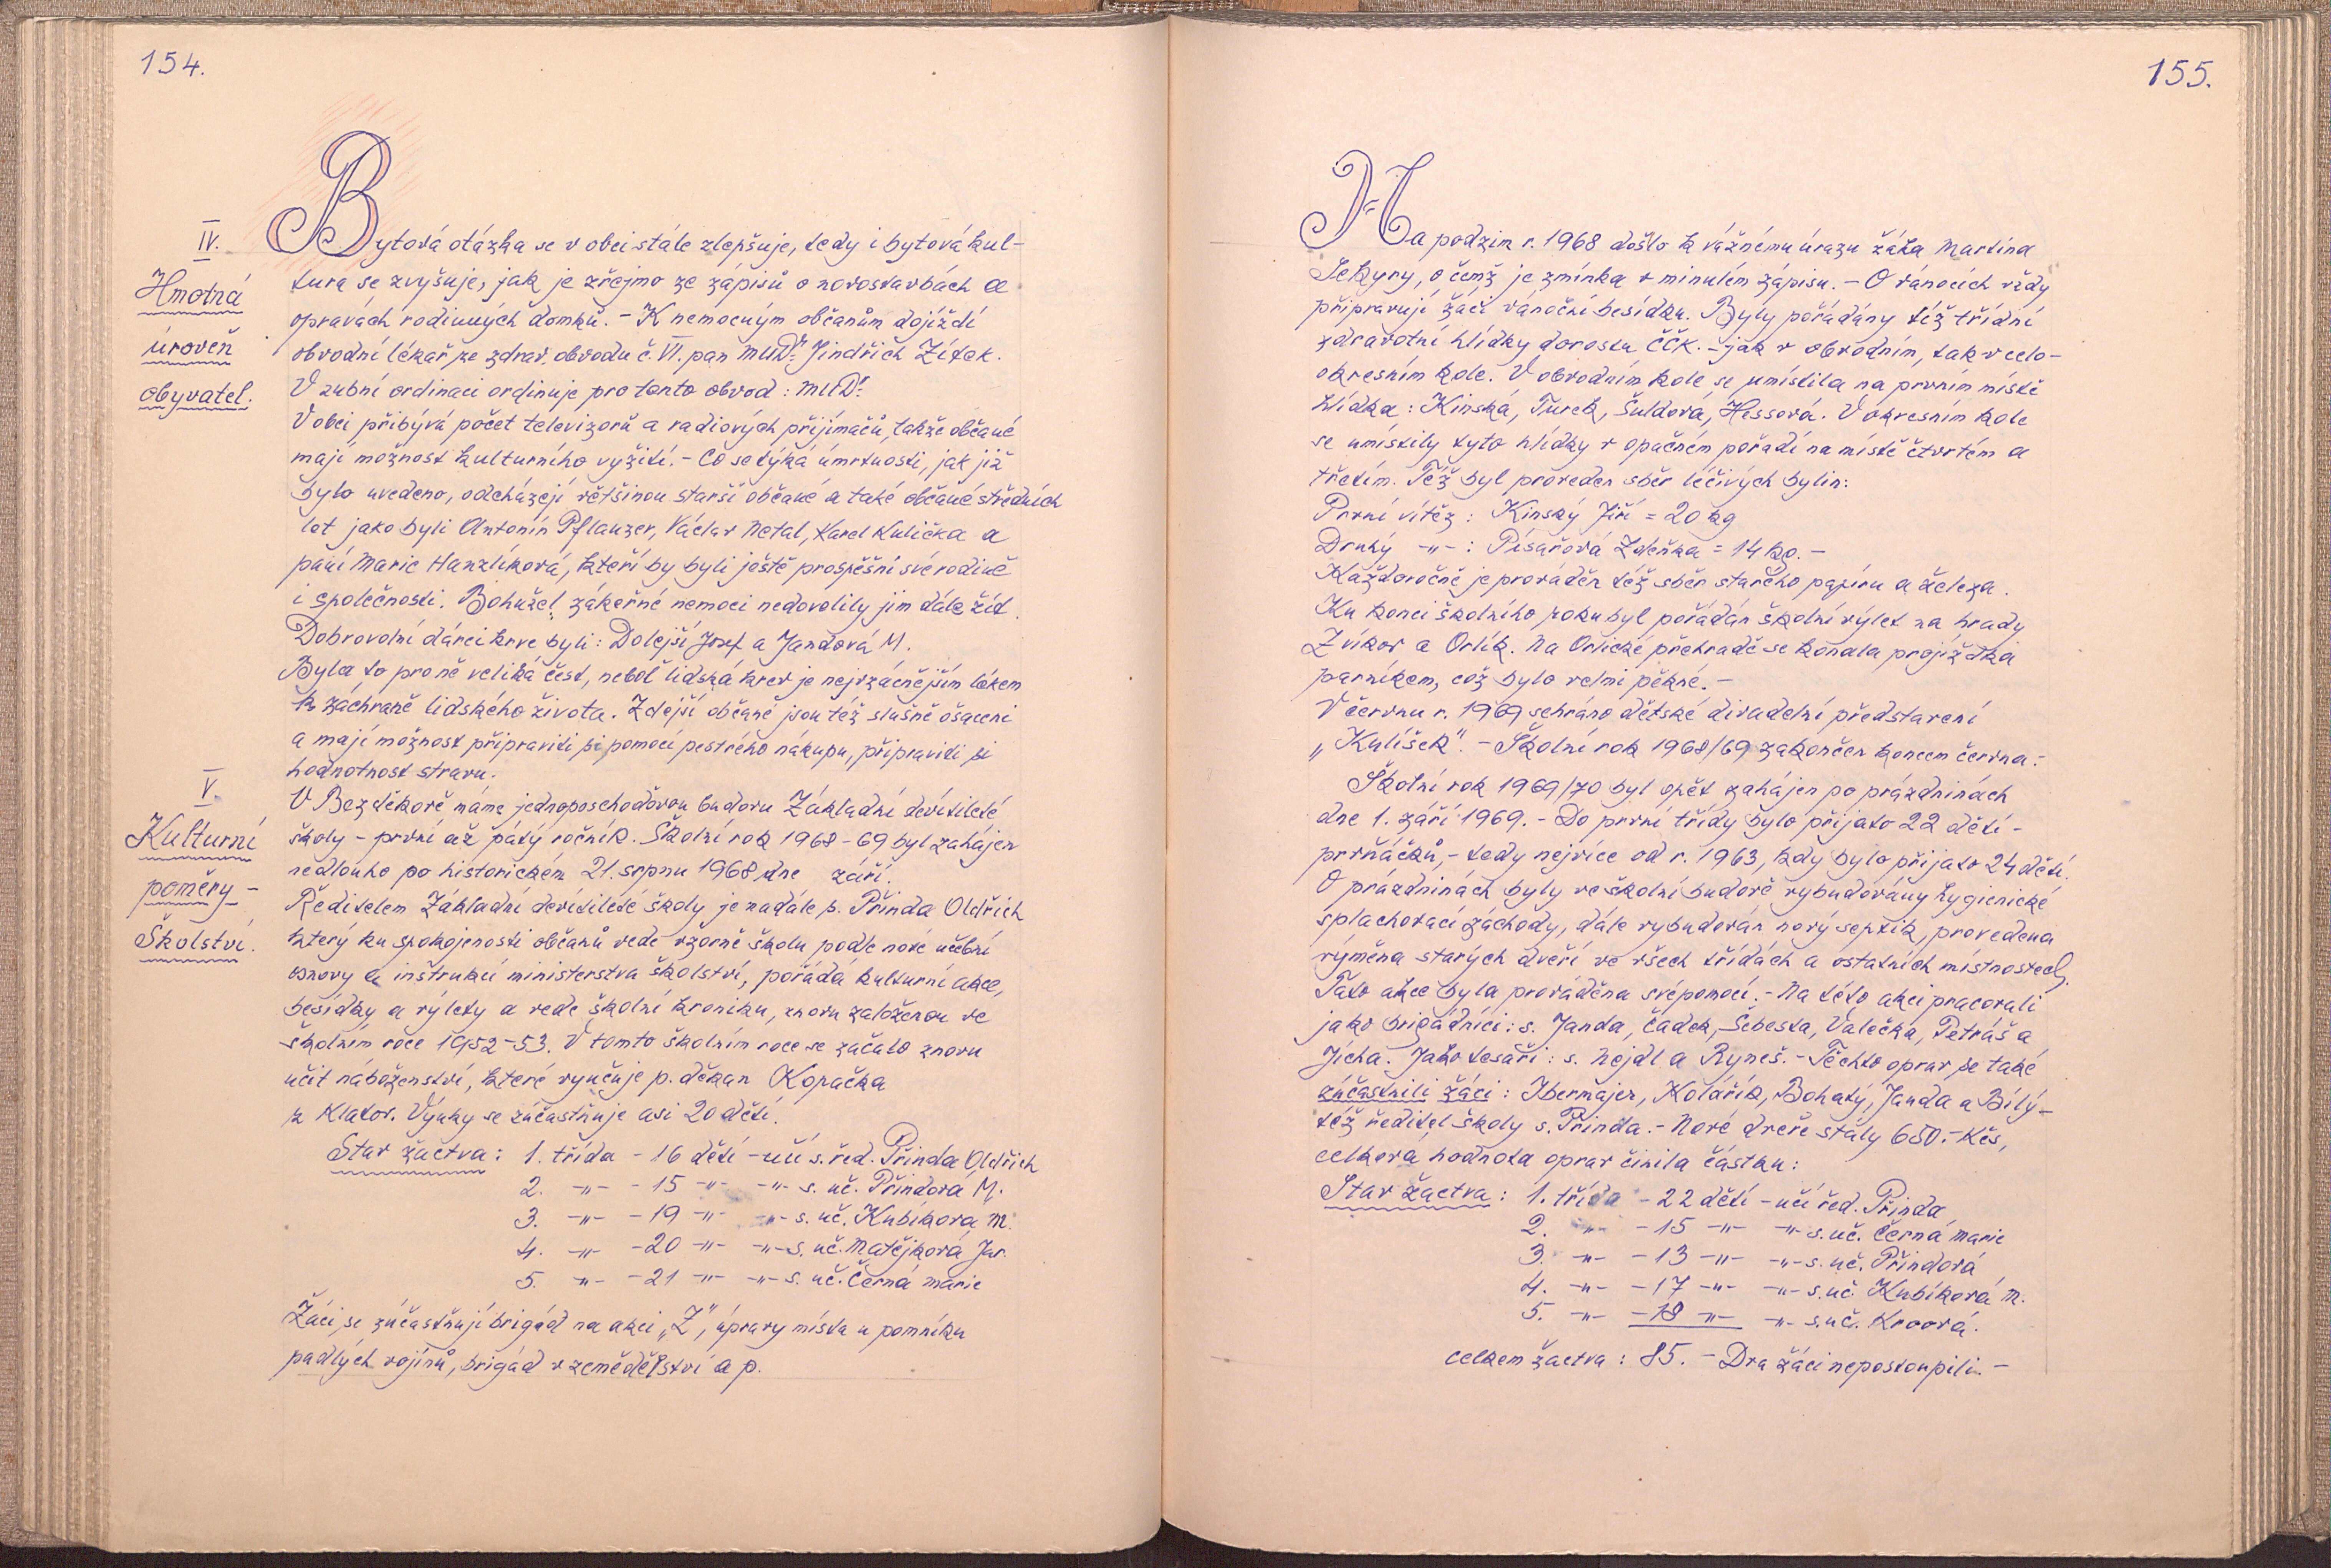 154.
IV.
Hmotná
úroveň
obyvatel.
Bytová otázka se v obci stále zlepšuje, tedy i bytová kul-
tura se zvyšuje, jak je zřejmo ze zápisů o novostavbách a
opravách rodinných domků. - K nemocným občanům dojíždí
obvodní lékař ze zdrav. obvodu č. VI. pan MUDr. Jindřich Žítek.
V zubní ordinaci ordinuje pro tento obvod: MUDr.
V obci přibývá počet televizorů a radiových přijímačů, takže občané
mají možnost kulturního vyžití. - Co se týká úmrtnosti, jak již
bylo uvedeno, odcházejí většinou starší občané a také občané středních
let jako byli Antonín Pflanzer, Václav Netal, Karel Kulička a
paní Marie Hanzlíková, kteří by byli ještě prospěšní své rodině
i společnosti. Bohužel, zákeřné nemoci nedovolily jim dále žít.
Dobrovolní dárci krve byli: Dolejší Josef a Jandová M.
Byla to pro ně veliká čest, neboť lidská krev je nejvzácnějším lékem
k záchraně lidského života. Zdejší občané jsou též slušně ošaceni
a mají možnost připraviti si pomocí pestrého nákupu, připraviti si
hodnotnost stravu.
V.
Kulturní
poměry -
Školství.
V Bezděkově máme jednoposchoďovou budovu Základní devítileté
školy - první až pátý ročník. Školní rok 1968-69 byl zahájen
nedlouho po historickém 21. srpnu 1968, dne září.
Ředitelem Základní devítileté školy je nadále s. Přinda Oldřich
který ku spokojenosti občanů vede vzorně školu podle nové učební
osnovy a inštrukcí ministerstva školství, pořádá kulturní akce,
besídky a výlety a vede školní kroniku, znovu založenou ve
školním roce 1952-53. V tomto školním roce se začalo znovu
učit náboženství, které vyučuje p. děkan Kopačka
z Klatov. Výuky se zúčastňuje asi 20 dětí.
Stav žactva: 1. třída - 16 dětí - učí s. řed. Přinda Oldřich
2. -"- - 15 -"- -"- s. uč. Přindová M.
3. -"- - 19 -"- -"- s. uč. Kubíková M.
4. -"- - 20 -"- -"- s. uč. Matějková Jar.
5. -"- - 21 -"- -"- s. uč. Černá Marie
Žáci se zúčastňují brigád na akci „Z", úpravy místa u pomníku
padlých vojínů, brigád v zemědělství a p.
155.
Na podzim r. 1968 došlo k vážnému úrazu žáka Martina
Sekyry, o čemž je zmínka v minulém zápisu. - O vánocích vždy
připravují žáci vánoční besídku. Byly pořádány též třídní
zdravotní hlídky dorostu ČČK. - jak v obvodním, tak v celo-
okresním kole. V obvodním kole se umístila na prvním místě
hlídka: Kinská, Turek, Šuldová, Hessová. V okresním kole
se umístily tyto hlídky v opačném pořadí na místě čtvrtém a
třetím. Též byl proveden sběr léčivých bylin:
První vítěz: Kinský Jiří = 20 kg
Druhý -"- : Písařová Zdeňka = 14 kg. -
Každoročně je prováděn též sběr starého papíru a železa.
Ku konci školního roku byl pořádán školní výlet na hrady
Zvíkov a Orlík. Na Orlické přehradě se konala projížďka
parníkem, což bylo velmi pěkné. -
V červnu r. 1969 sehráno dětské divadelní představení
„Kulíšek". - Školní rok 1968/69 zakončen koncem června. -
Školní rok 1969/70 byl opět zahájen po prázdninách
dne 1. září 1969. - Do první třídy bylo přijato 22 dětí -
prvňáčků, - tedy nejvíce od r. 1963, kdy bylo přijato 24 dětí.
O prázdninách byly ve školní budově vybudovány hygienické
splachovací záchody, dále vybudován nový septik, provedena
výměna starých dveří ve všech třídách a ostatních místnostech.
Tato akce byla prováděna svépomocí. - Na této akci pracovali
jako brigádníci: s. Janda, Čádek, Šebesta, Valečka, Petráš a
Jícha. Jako tesaři: s. Nejdl a Ryneš. - Těchto oprav se také
zúčastnili žáci: Ibermajer, Kolářík, Bohatý, Janda a Bílý -
též ředitel školy s. Přinda. - Nové dveře stály 650.- Kčs,
celková hodnota oprav činila částku:
Stav žactva: 1. třída - 22 dětí - učí řed. Přinda
2. -"- - 15 -"- -"- s. uč. Černá Marie
3. -"- - 13 -"- -"- s. uč. Přindová
4. -"- - 17 -"- -"- s. uč. Kubíková M.
5. -"- - 18 -"- -"- s. uč.
celkem žactva: 85. - Dva žáci nepostoupili. -